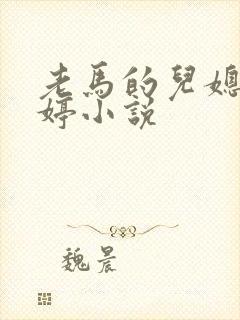 老馬的兒媳
婷小說
魏晨